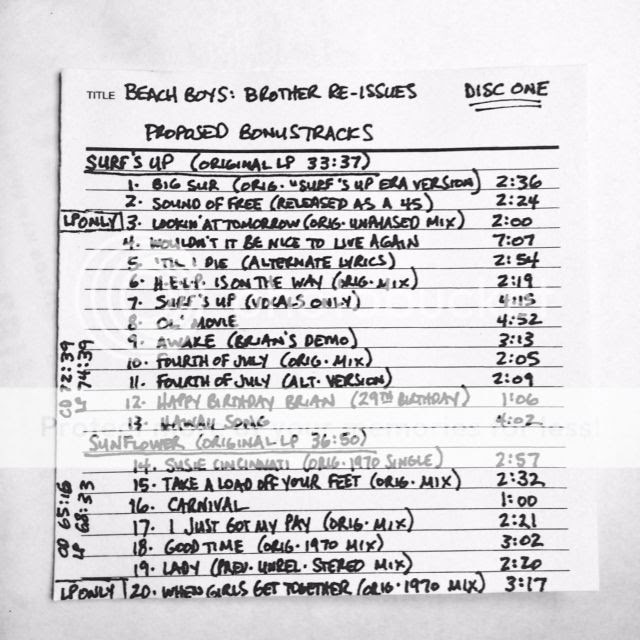 TITLE BEACH BOYS: BROTHER RE-ISSUES DISC ONE
PROPOSED BONUSTRACKS
SURF'S UP (ORIGINAL LP 33:37)
1. BIG SUR (ORIG. "SURF'S UP" ERA VERSION) 2:36
2. SOUND OF FREE (RELEASED AS A 45) 2:24
LP ONLY 3. LOOKIN' AT TOMORROW (ORIG. UNPHASED MIX) 2:00
4. WOULDN'T IT BE NICE TO LIVE AGAIN 7:07
5. 'TIL I DIE (ALTERNATE LYRICS) 2:54
6. H.E.L.P. IS ON THE WAY (ORIG. MIX) 2:19
7. SURF'S UP (VOCALS ONLY) 4:15
8. OL' MOVIE 4:52
9. AWAKE (BRIAN'S DEMO) 3:13
10. FOURTH OF JULY (ORIG. MIX) 2:05
11. FOURTH OF JULY (ALT. VERSION) 2:09
12. HAPPY BIRTHDAY BRIAN (29TH BIRTHDAY) 1:06
13. HAWAII SONG 4:02
CD 72:39
LP 74:39
SUNFLOWER (ORIGINAL LP 36:50)
14. SUSIE CINCINNATI (ORIG. 1970 SINGLE) 2:57
15. TAKE A LOAD OFF YOUR FEET (ORIG. MIX) 2:32
16. CARNIVAL 1:00
17. I JUST GOT MY PAY (ORIG. MIX) 2:21
18. GOOD TIME (ORIG. 1970 MIX) 3:02
19. LADY (PREV. UNREL. STEREO MIX) 2:20
LP ONLY 20. WHEN GIRLS GET TOGETHER (ORIG. 1970 MIX) 3:17
CD 65:16
LP 68:33